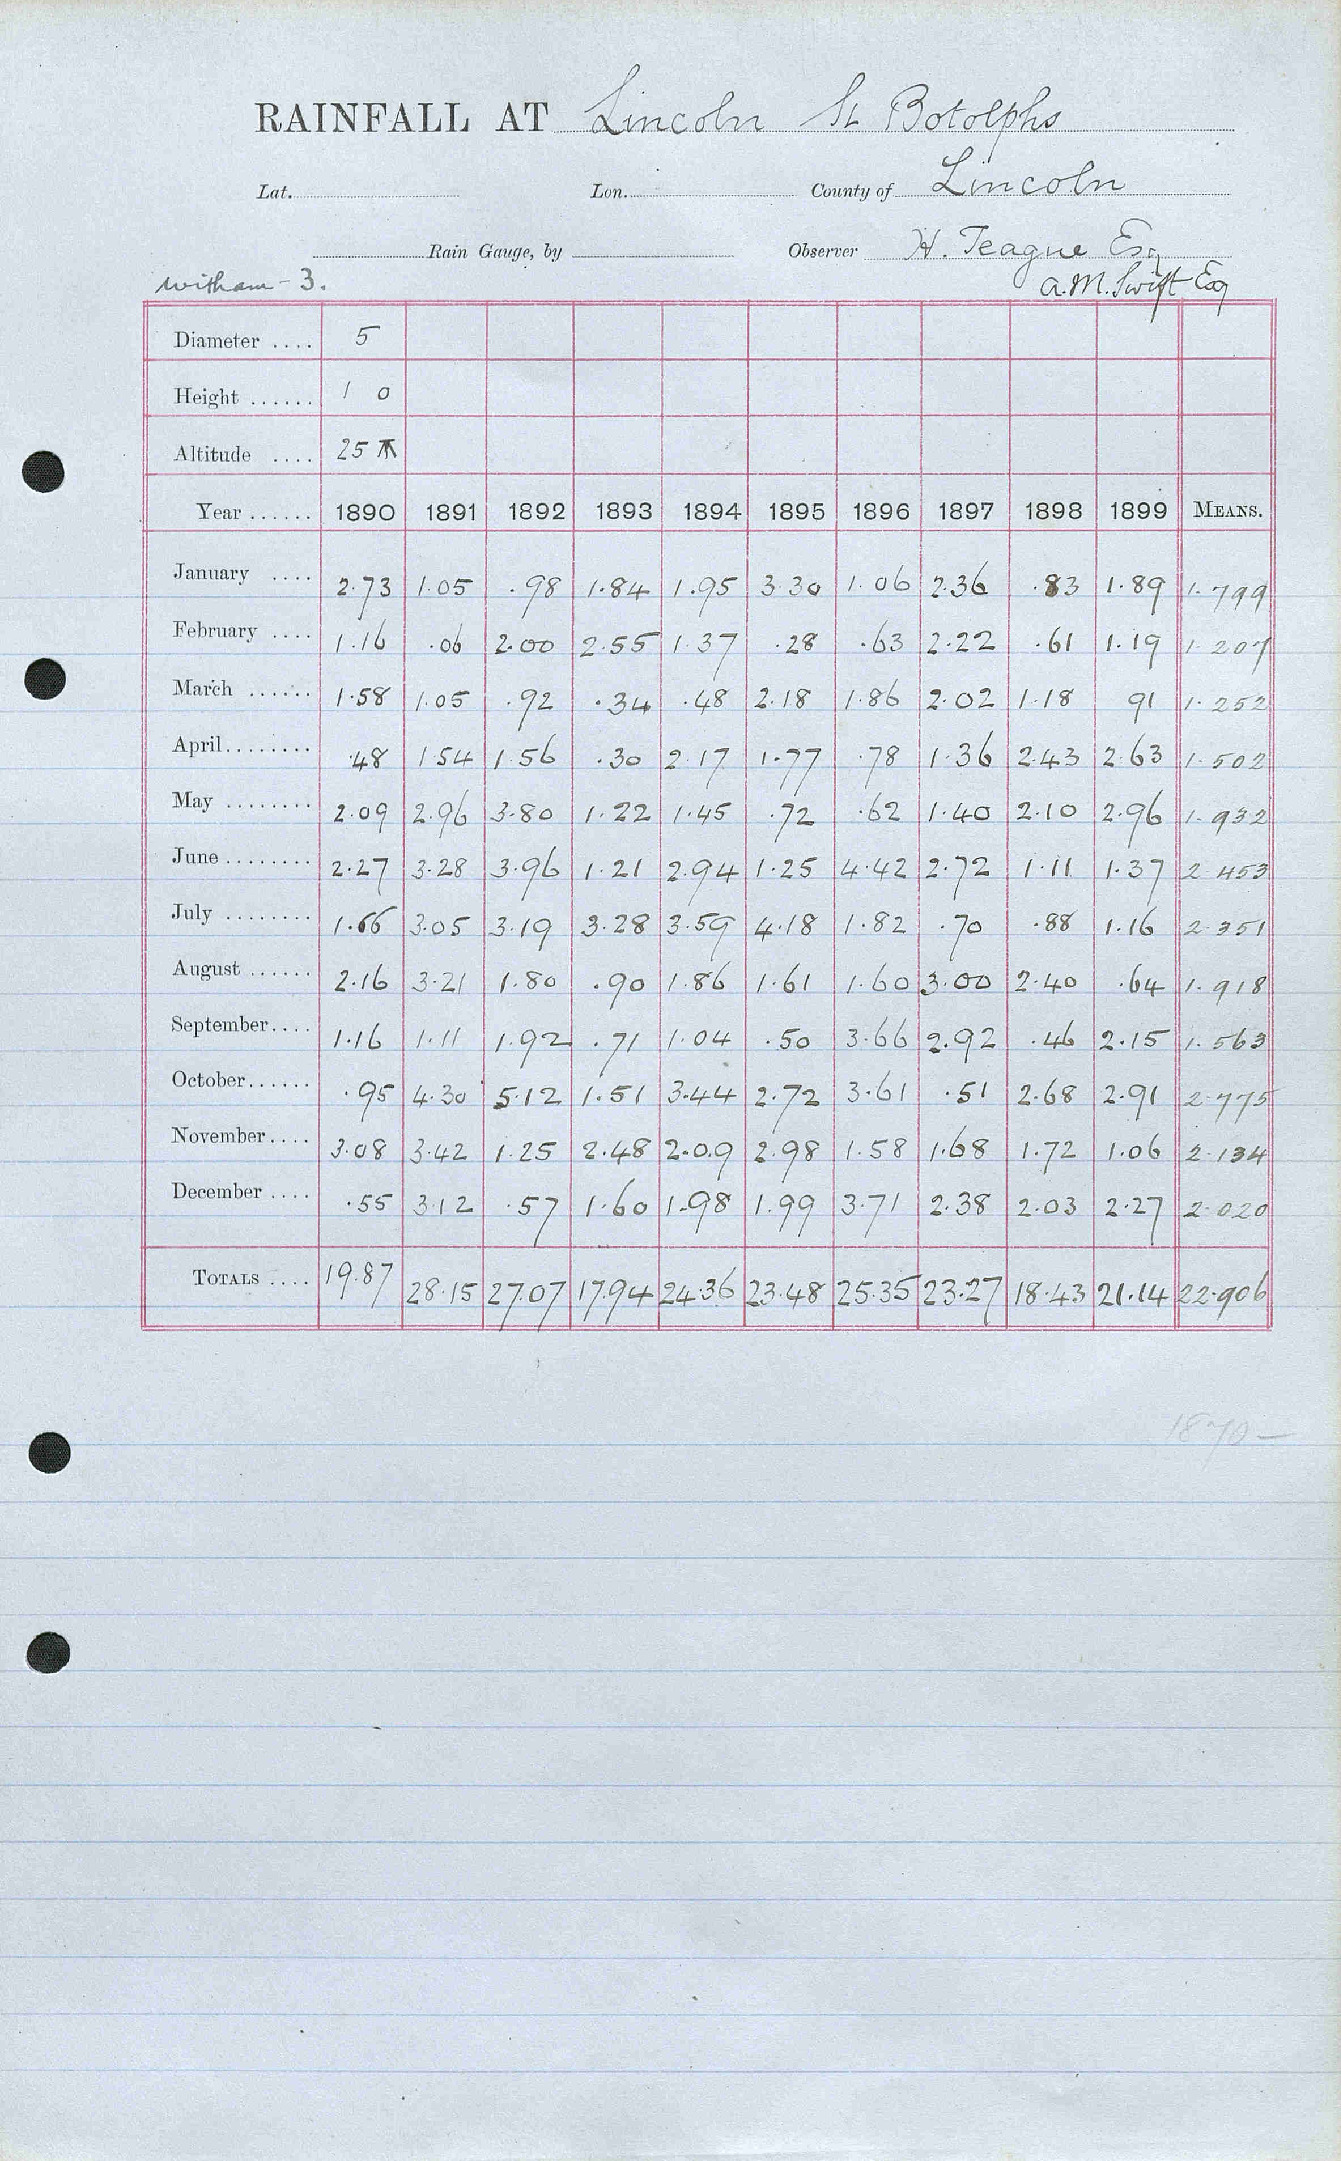 RAINFALL AT Lincoln St Botolphs
Lat. Lon. County of Lincoln
Rain Gauge, by Observer H. Teague Esq
Witham - 3. A.M. Swift Esq
Diameter .... 5
Height ...... 1 0
Altitude .... 25
Year ...... 1890 1891 1892 1893 1894 1895 1896 1897 1898 1899 MEANS.
January .... 2.73 1.05 .98 1.84 1.95 3.30 1.06 2.36 .83 1.89 1.799
February .... 1.16 .06 2.00 2.55 1.37 .28 .63 2.22 .61 1.19 1.207
March ...... 1.58 1.05 .92 .34 .48 2.18 1.86 2.02 1.18 91 1.252
April........ .48 1 54 1 56 .30 2.17 1.77 .78 1.36 2.43 2.63 1.502
May ........ 2.09 2.96 3.80 1.22 1.45 .72 .62 1.40 2.10 2.96 1.932
June ........ 2.27 3.28 3.96 1.21 2.94 1.25 4.42 2.72 1.11 1.37 2.453
July ........ 1.66 3.05 3.19 3.28 3.59 4.18 1.82 .70 .88 1.16 2.351
August ...... 2.16 3.21 1.80 .90 1.86 1.61 1.60 3.00 2.40 .64 1.918
September.... 1.16 1.11 1.92 .71 1.04 .50 3.66 2.92 .46 2.15 1.563
October...... .95 4.30 5.12 1.51 3.44 2.72 3.61 .51 2.68 2.91 2.775
November.... 3.08 3.42 1.25 2.48 2.09 2.98 1.58 1.68 1.72 1.06 2.134
December .... .55 3.12 .57 1.60 1.98 1.99 3.71 2.38 2.03 2.27 2.020
TOTALS .... 19.87 28.15 27.07 17.94 24.36 23.48 25.35 23.27 18.43 21.14 22.906
1870 —